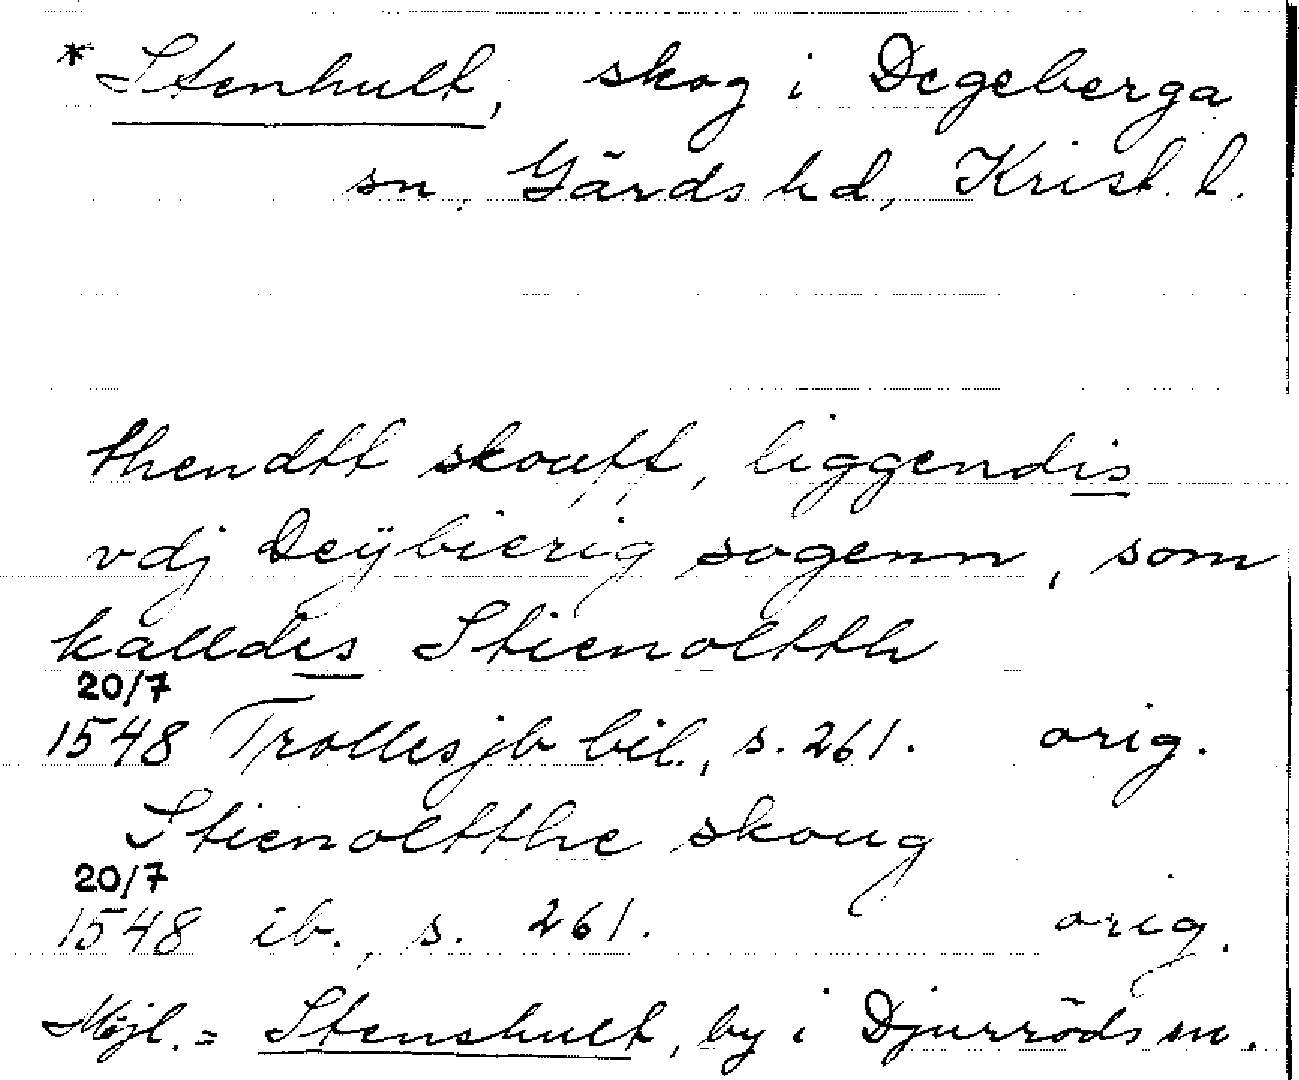 * Stenhult, skog i Degeberga
sn, Gärds hd, Krist. l.
thendtt skouff, liggendis
vdj Deÿbierig sogenn, som
kalldis Stienolttth
20/7
1548 Trollesjb bil., s. 261. orig.
Stienoltthe skoug
20/7
1548 ib., s. 261. orig.
Möjl. = Stenshult, by i Djurröds sn.